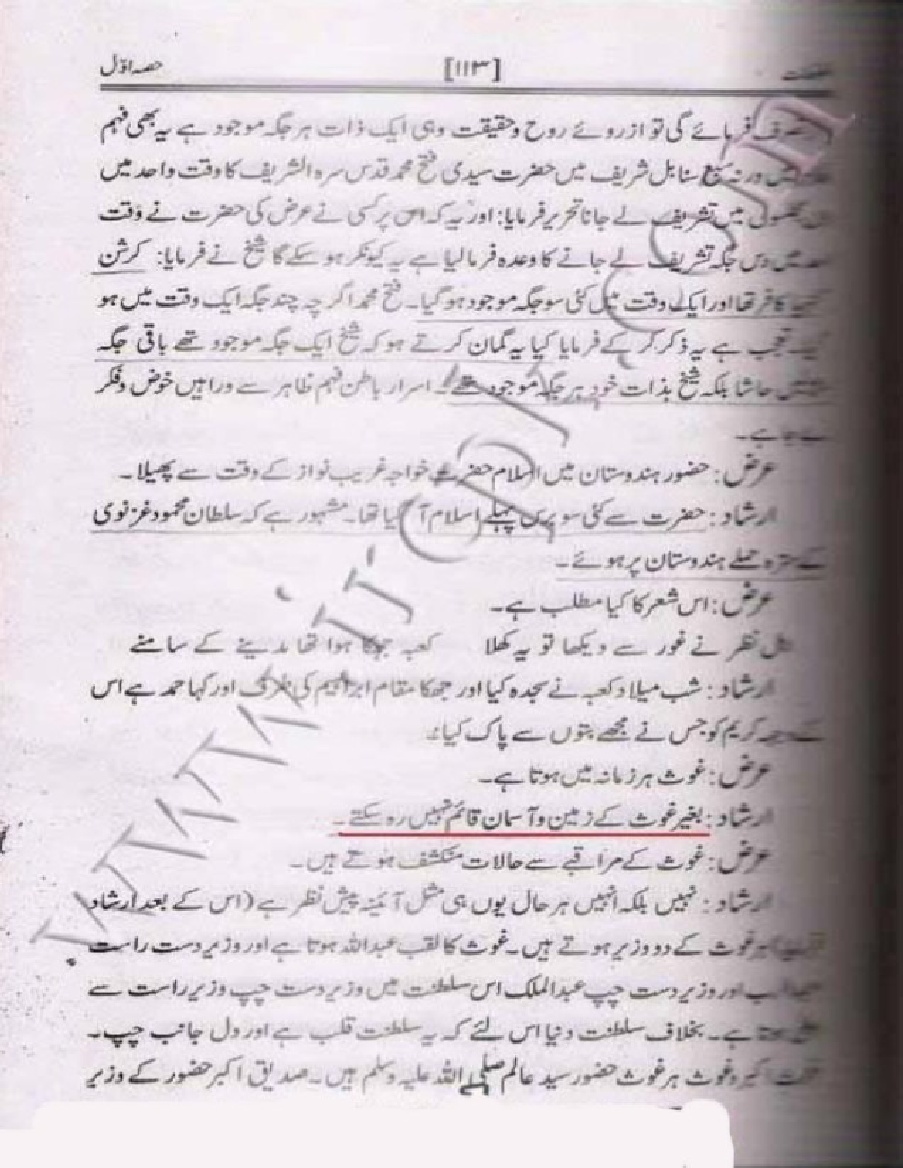 حصہ اوّل [۱۱۳]
تصرف فرمائے گی تو از روئے روح و حقیقت وہی ایک ذات ہر جگہ موجود ہے یہ بھی فہم
ورنہ سبع سنابل شریف میں حضرت سیدی فتح محمد قدس سرہ الشریف کا وقت واحد میں
میں تشریف لے جانا تحریر فرمایا: اور یہ کہ اس پر کسی نے عرض کی حضرت نے وقت
میں دس جگہ تشریف لے جانے کا وعدہ فرما لیا ہے یہ کیونکر ہو سکے گا شیخ نے فرمایا: کرشن
کنہیا کافر تھا اور ایک وقت میں کئی سو جگہ موجود ہو گیا۔ فتح محمد اگر چہ چند جگہ ایک وقت میں ہو
تعجب ہے یہ ذکر کر کے فرمایا کیا یہ گمان کرتے ہو کہ شیخ ایک جگہ موجود تھے باقی جگہ
حاشا بلکہ شیخ بذات خود ہر جگہ موجود تھے۔ اسرار باطن فہم ظاہر سے وراہیں خوض و فکر
ہے۔
عرض: حضور ہندوستان میں اسلام حضرت خواجہ غریب نواز کے وقت سے پھیلا۔
ارشاد: حضرت سے کئی سو برس پہلے اسلام آ گیا تھا۔ مشہور ہے کہ سلطان محمود غزنوی
کے سترہ حملے ہندوستان پر ہوئے۔
عرض: اس شعر کا کیا مطلب ہے۔
نظر نے غور سے دیکھا تو یہ کھلا کعبہ جھکا ہوا تھا مدینے کے سامنے
ارشاد: شب میلاد کعبہ نے سجدہ کیا اور جھکا مقام ابراہیم کی طرف اور کہا حمد ہے اس
کے وجہ کریم کو جس نے مجھے بتوں سے پاک کیا۔
عرض: غوث ہر زمانہ میں ہوتا ہے۔
ارشاد: بغیر غوث کے زمین و آسمان قائم نہیں رہ سکتے۔
عرض: غوث کے مراقبے سے حالات منکشف ہوتے ہیں۔
ارشاد: نہیں بلکہ انہیں ہر حال یوں ہی مثل آئینہ پیش نظر ہے (اس کے بعد ارشاد
فرمایا) ہر غوث کے دو وزیر ہوتے ہیں۔ غوث کا لقب عبداللہ ہوتا ہے اور وزیر دست راست
اور وزیر دست چپ عبدالملک اس سلطنت میں وزیر دست چپ وزیر راست سے
ہوتا ہے۔ بخلاف سلطنت دنیا اس لئے کہ یہ سلطنت قلب ہے اور دل جانب چپ۔
غوث اکبر و غوث ہر غوث حضور سید عالم صلی اللہ علیہ وسلم ہیں۔ صدیق اکبر حضور کے وزیر